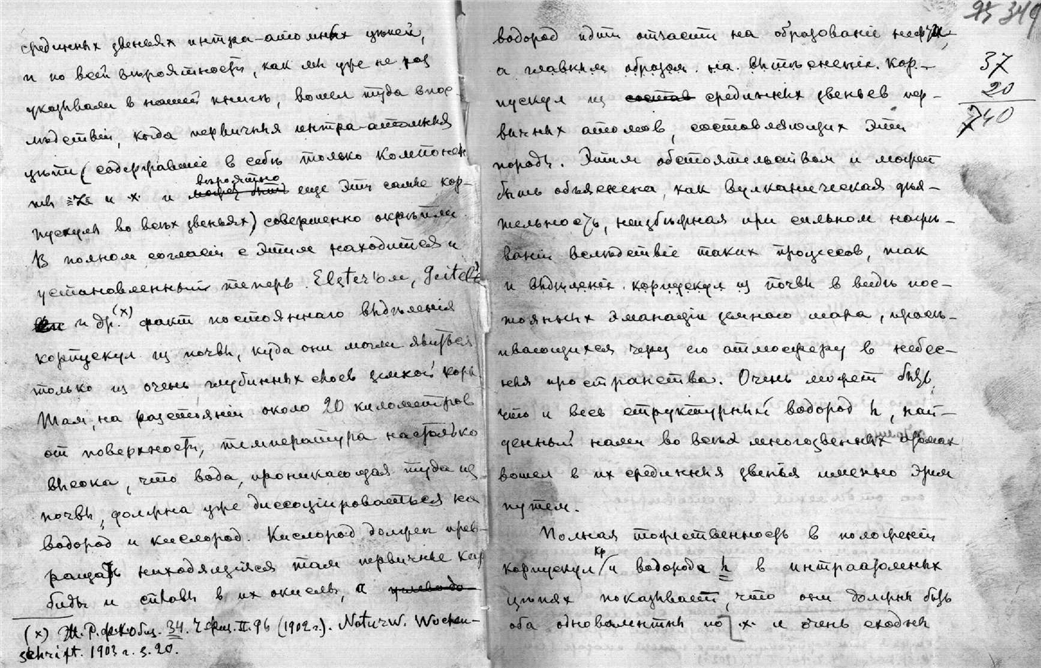 срединных звеньях интра-атомных цѣпей,
и по всей вѣроятности, как мы уже не раз
указывали в нашей книгѣ, вошел туда впос-
лѣдствіи, когда первичныя интра-атомныя
цѣпи (содержавшіе в себѣ только компонен
ты и x и вѣроятно еще эти самые кор-
пускулы во всѣх звеньях) совершенно окрѣпли.
В полном согласіи с этим находится и
установленный теперь Elster'ом, Geitel'
и др.(x) факт постояннаго выдѣленія
корпускул из почвы, куда они могли явиться
только из очень глубинных слоев земной коры
Там, на разстояніи около 20 километров
от поверхности, температура настолько
высока, что вода, проникающая туда из
почвы, должна уже диссоціироваться на
водород и кислород. Кислород должен прев-
ращать находящіяся там первичные кар
биды и сплавы в их окислы, а
(x) Ж. Р. физ. Общ. 34. 2 физ. II. 96 (1902 г.). Naturw. Wochen-
schrift. 1903 г. s. 20.
95 349
37
20
740
водород идти отчасти на образованіе нефти,
а главным образом на вытѣсненіе кор-
пускул из состав срединных звеньев пер-
вичных атомов, составляющих эти
породы. Этим обстоятельством и может
быть объяснена, как вулканическая дѣя-
тельность, неизбѣжная при сильном нагрѣ-
ваніи вслѣдствіе таких процессов, так
и выдѣленіе корпускул из почвы в видѣ пос-
тоянных эманацій земного шара,
через его атмосферу в небес-
ныя пространства. Очень может быть,
что и весь структурный водород h, най-
денный нами во всѣх многозвенных атомах
вошел в их срединныя звенья именно этим
путем.
Полная тождественность в положеніи
корпускул и водорода h в интраатомных
цѣпях показывает, что они должны быть
оба одновалентны по x и очень сходны